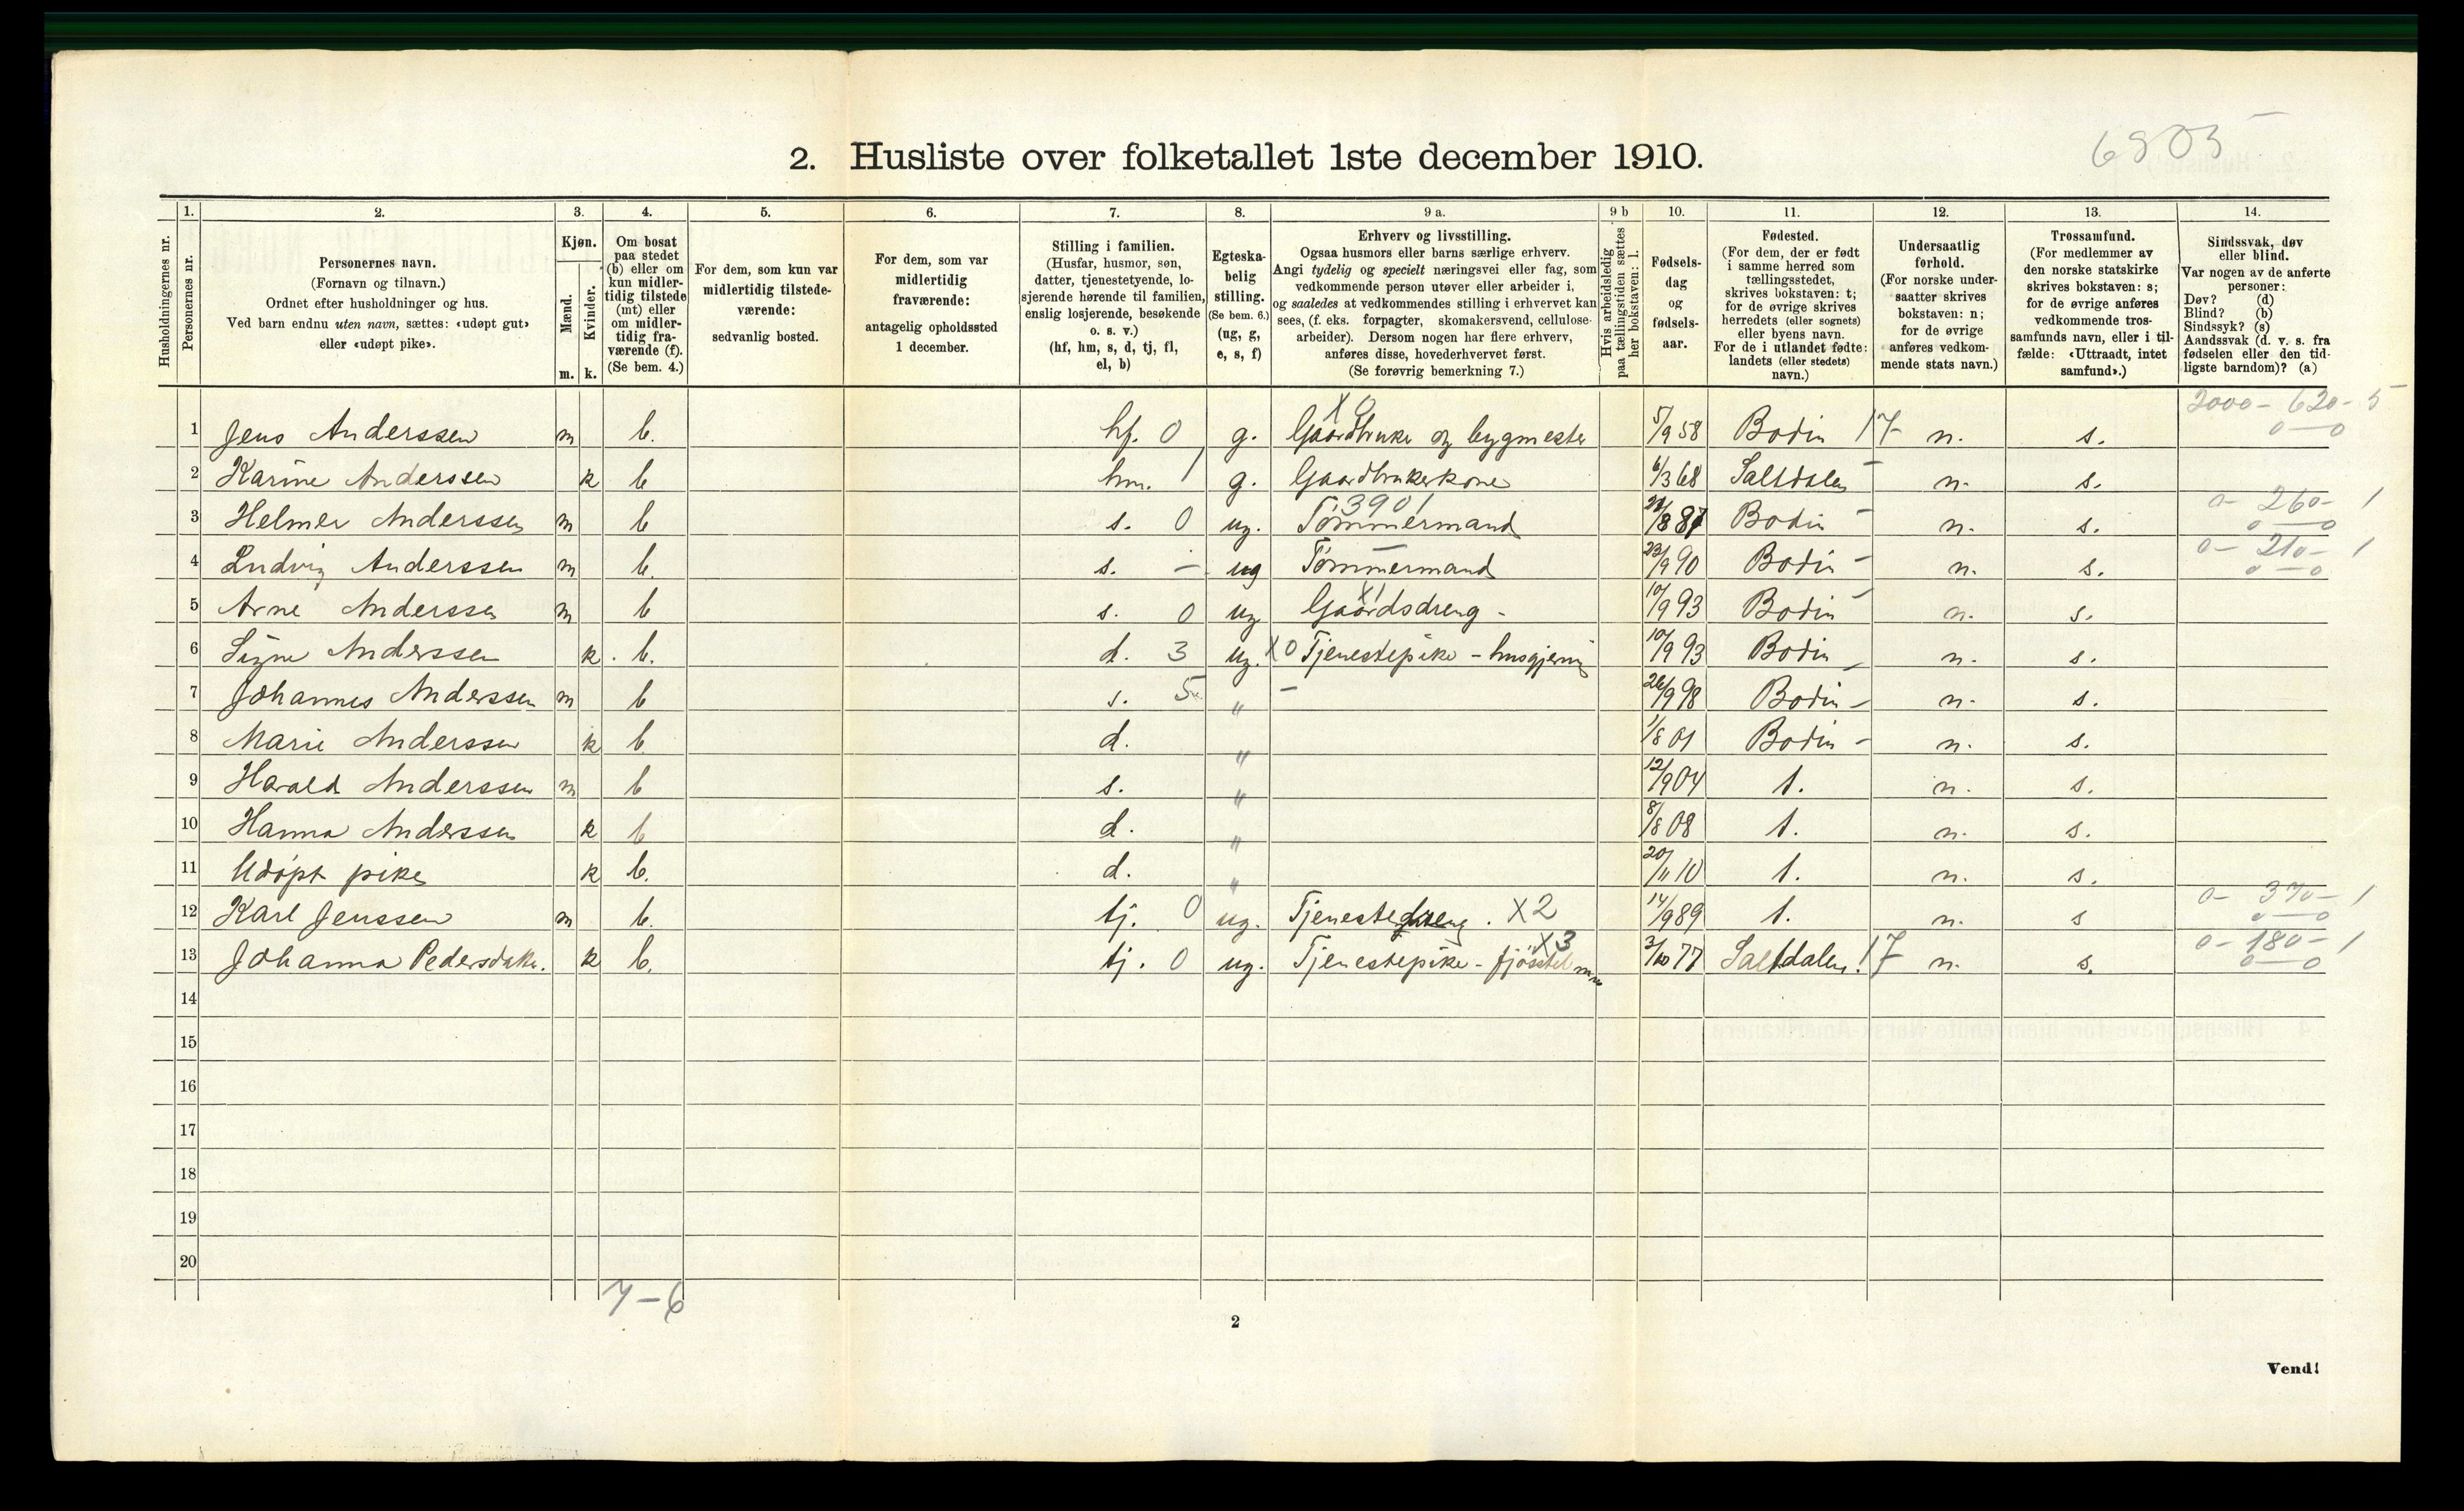 6905
2. Husliste over folketallet 1ste december 1910.
1. 2. 3. 4. 5. 6. 7. 8. 9 a. 9 b 10. 11. 12. 13. 14.
Husholdningernes nr.
Personernes nr.
Personernes navn.
(Fornavn og tilnavn.)
Ordnet efter husholdninger og hus.
Ved barn endnu uten navn, sættes: «udøpt gut»
eller «udøpt pike».
Kjøn.
Mænd.
Kvinder.
m. k.
Om bosat
paa stedet
(b) eller om
kun midler-
tidig tilstede
(mt) eller
om midler-
tidig fra-
værende (f).
(Se bem. 4.)
For dem, som kun var
midlertidig tilstede-
værende:
sedvanlig bosted.
For dem, som var
midlertidig
fraværende:
antagelig opholdssted
1 december.
Stilling i familien.
(Husfar, husmor, søn,
datter, tjenestetyende, lo-
sjerende hørende til familien,
enslig losjerende, besøkende
o. s. v.)
(hf, hm, s, d, tj, fl,
el, b)
Egteska-
belig
stilling.
(Se bem. 6.)
(ug, g,
e, s, f)
Erhverv og livsstilling.
Ogsaa husmors eller barns særlige erhverv.
Angi tydelig og specielt næringsvei eller fag, som
vedkommende person utøver eller arbeider i,
og saaledes at vedkommendes stilling i erhvervet kan
sees, (f. eks. forpagter, skomakersvend, cellulose-
arbeider). Dersom nogen har flere erhverv,
anføres disse, hovederhvervet først.
(Se forøvrig bemerkning 7.)
Hvis arbeidsledig
paa tællingstiden sættes
her bokstaven: l.
Fødsels-
dag
og
fødsels-
aar.
Fødested.
(For dem, der er født
i samme herred som
tællingsstedet,
skrives bokstaven: t;
for de øvrige skrives
herredets (eller sognets)
eller byens navn.
For de i utlandet fødte:
landets (eller stedets)
navn.)
Undersaatlig
forhold.
(For norske under-
saatter skrives
bokstaven: n;
for de øvrige
anføres vedkom-
mende stats navn.)
Trossamfund.
(For medlemmer av
den norske statskirke
skrives bokstaven: s;
for de øvrige anføres
vedkommende tros-
samfunds navn, eller i til-
fælde: «Uttraadt, intet
samfund».)
Sindssvak, døv
eller blind.
Var nogen av de anførte
personer:
Døv? (d)
Blind? (b)
Sindssyk? (s)
Aandssvak (d. v. s. fra
fødselen eller den tid-
ligste barndom)? (a)
X 0 2000 - 620 - 5
1 Jens Anderssen m b. hf. 0 g. Gaardbruke og bygmester 5/9 58 Bodin 17 n. s. 0 — 0
2 Karine Anderssen k b hm. 1 g. Gaardbrukerkone 6/3 68 Saltdalen - n. s.
3901 0 - 260 - 1
3 Helmer Anderssen m b s. 0 ug. Tømmermand 21/8 87 Bodin - n. s. 0 — 0
0 - 210 - 1
4 Ludvig Anderssen m b. s. - ug Tømmermand 23/9 90 Bodin - n. s. 0 — 0
X1
5 Arne Anderssen m b s. 0 ug Gaardsdreng - 10/9 93 Bodin - n. s.
6 Signe Anderssen k . b. d. 3 ug. X0 Tjenestepike - husgjerning 10/9 93 Bodin - n. s.
7 Johannes Anderssen m b s. 5 " - 26/9 98 Bodin - n. s.
8 Marie Anderssen k b d. " 1/8 01 Bodin - n. s.
9 Harald Anderssen m b s. " 12/9 04 t. n. s.
10 Hanna Anderssen k b d. " 8/8 08 t. n. s.
11 Udøpt pike k b. d. " 20/11 10 t. n. s.
0 - 370 - 1
12 Karl Jenssen m b. tj. 0 ug. Tjenestedreng . X2 14/9 89 t. n. s 0 — 0
X3 0 - 180 - 1
13 Johanna Pedersdatter. k b. tj. 0 ug. Tjenestepike - fjøsstel 3/10 77 Saltdalen. 17 n. s. 0 — 0
14
15
16
17
18
19
20
7 - 6
2
Vend!